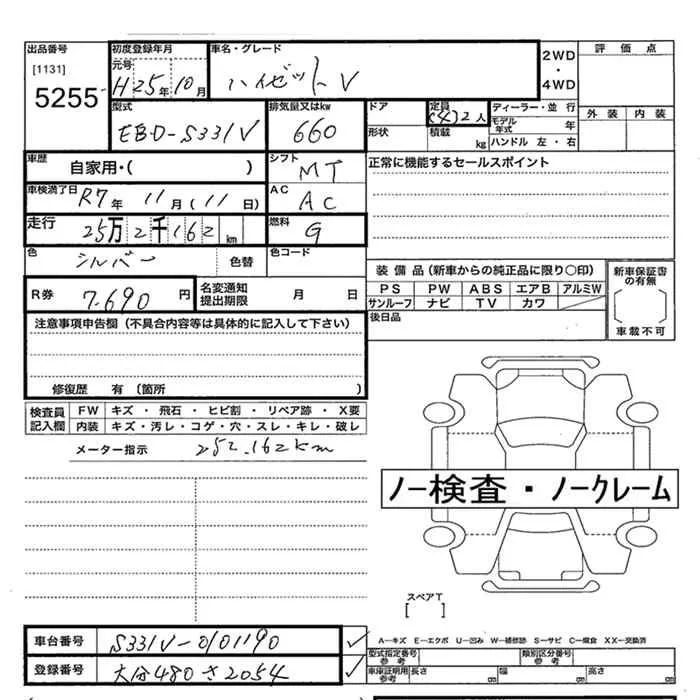 出品番号 初度登録年月 車名・グレード 2WD 評価点
[1131] 元号 ・
5255 H25年10月 ハイゼットV 4WD
型式 排気量又はkw ドア 定員 ディーラー・並行 外装 内装
EBD-S331V 660 (4)2人 モデル年式 年
形状 積載 kg ハンドル 左・右
車歴 自家用・( ) シフト MT 正常に機能するセールスポイント
車検満了日 R7年 11月(11日) AC AC
走行 25万2千162km 燃料 G
色 シルバー 色替 色コード
装備品(新車からの純正品に限り○印) 新車保証書の有無
R券 7,690円 名変通知提出期限 月 日 PS PW ABS エアB アルミW
サンルーフ ナビ TV カワ
注意事項申告欄(不具合内容等は具体的に記入して下さい) 後日品 車載不可
修復歴 有 〔箇所 〕
検査員記入欄 FW キズ・飛石・ヒビ割・リペア跡・X要
内装 キズ・汚レ・コゲ・穴・スレ・キレ・破レ
メーター指示 252,162km
ノー検査・ノークレーム
スペアT
[ ]
車台番号 S331V-0101190 A-キズ E-エクボ U-凹み W-補修跡 S-サビ C-腐食 XX-交換済
型式指定番号 参考 類別区分番号 参考
登録番号 大分480さ2054 車庫証明用 参考 長さ cm 幅 cm 高さ cm